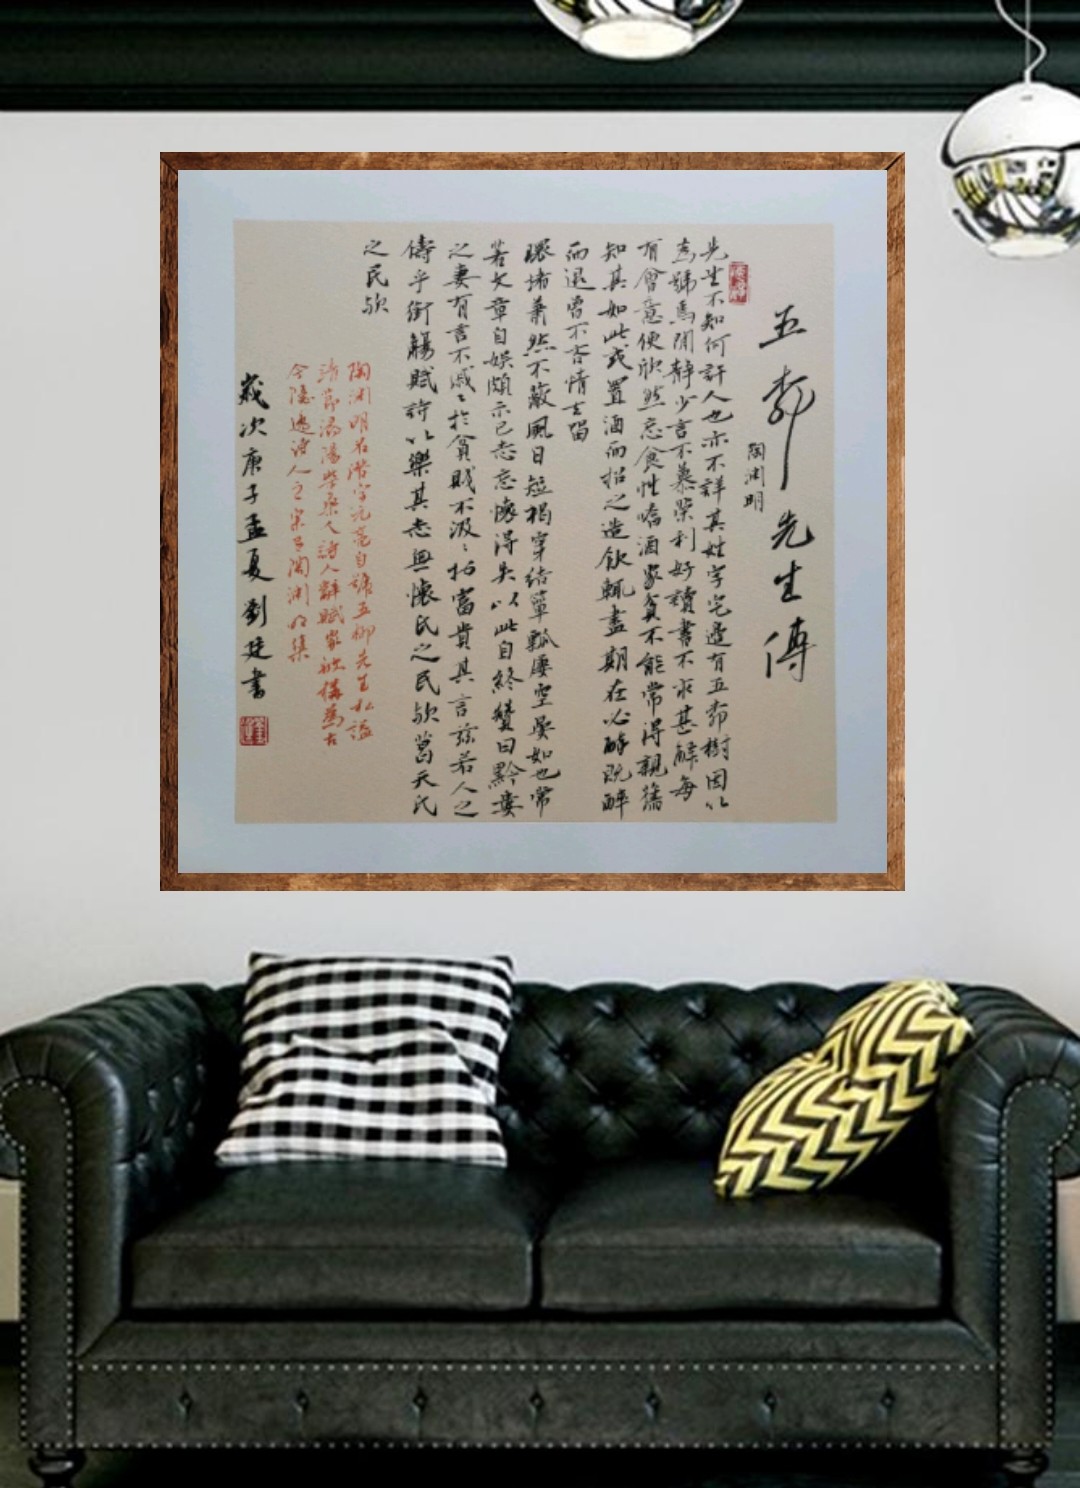 五柳先生傳
陶淵明
先生不知何許人也亦不詳其姓字宅邊有五柳樹因以
為號焉閒靜少言不慕榮利好讀書不求甚解每
有會意便欣然忘食性嗜酒家貧不能常得親舊
知其如此或置酒而招之造飲輒盡期在必醉既醉
而退曾不吝情去留
環堵蕭然不蔽風日短褐穿結簞瓢屢空晏如也常
著文章自娛頗示己志忘懷得失以此自終贊曰黔婁
之妻有言不戚〻於貧賤不汲〻於富貴其言茲若人之
儔乎銜觴賦詩以樂其志無懷氏之民歟葛天氏
之民歟
陶淵明名潛字元亮自號五柳先生私謚
靖節潯陽柴桑人詩人辭賦家被稱為古
今隱逸詩人之宗有陶淵明集
歲次庚子孟夏劉廷書